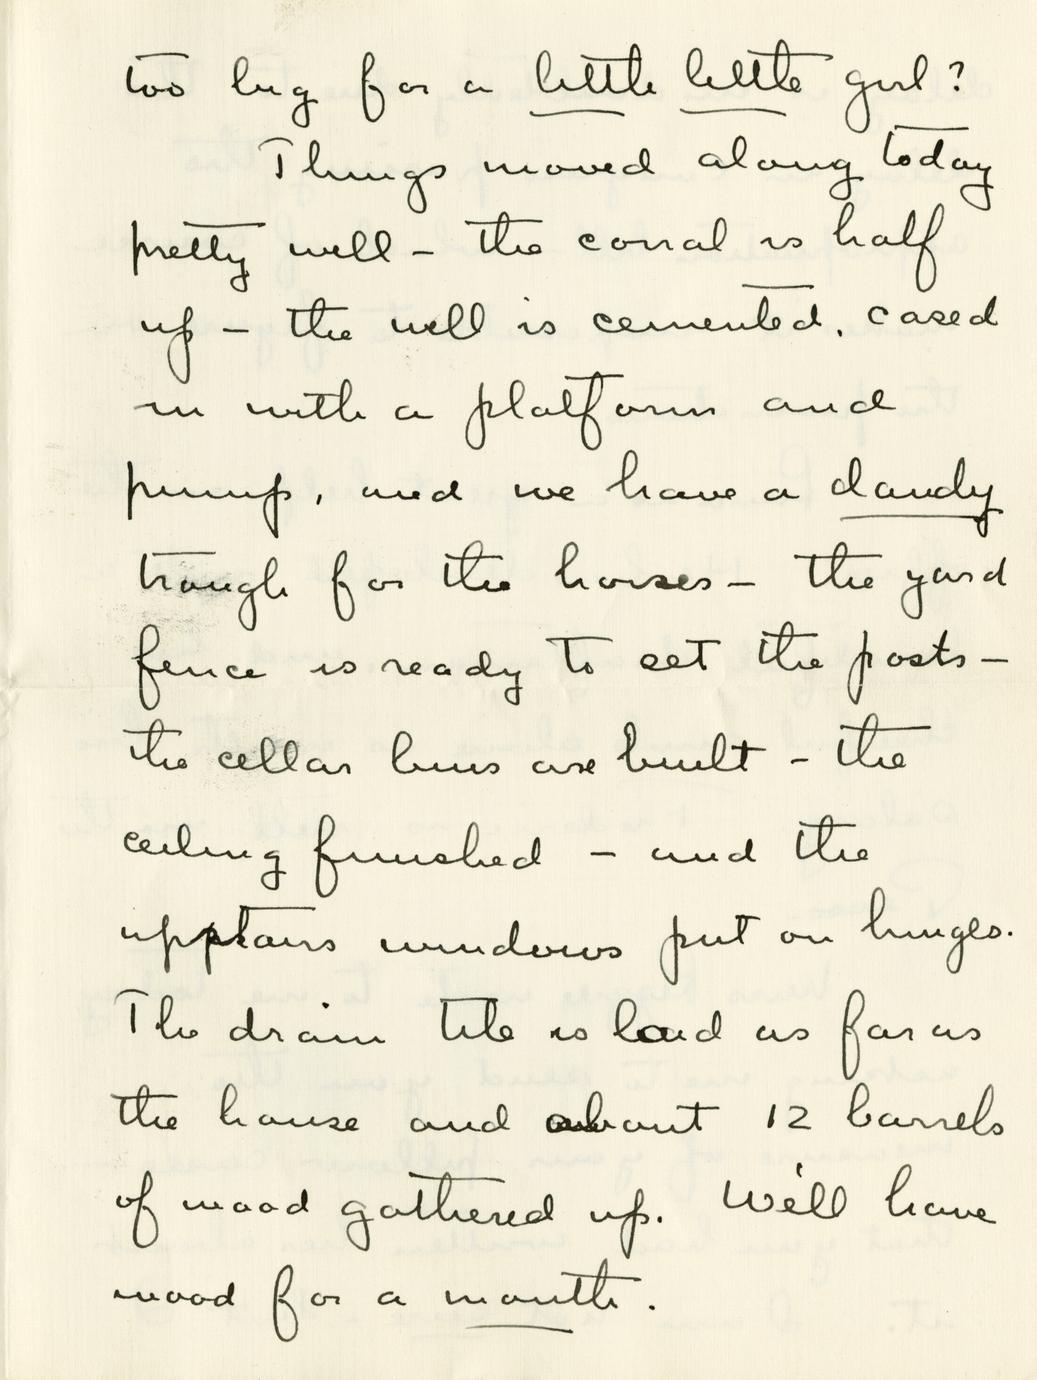 too big for a little little girl?
Things moved along today
pretty well – the corral is half
up – the well is cemented, cased
in with a platform and
pump, and we have a dandy
trough for the horses – the yard
fence is ready to set the posts –
the cellar bins are built – the
ceiling finished – and the
upstairs windows put on hinges.
The drain tile is laid as far as
the house and about 12 barrels
of wood gathered up. We'll have
wood for a month.